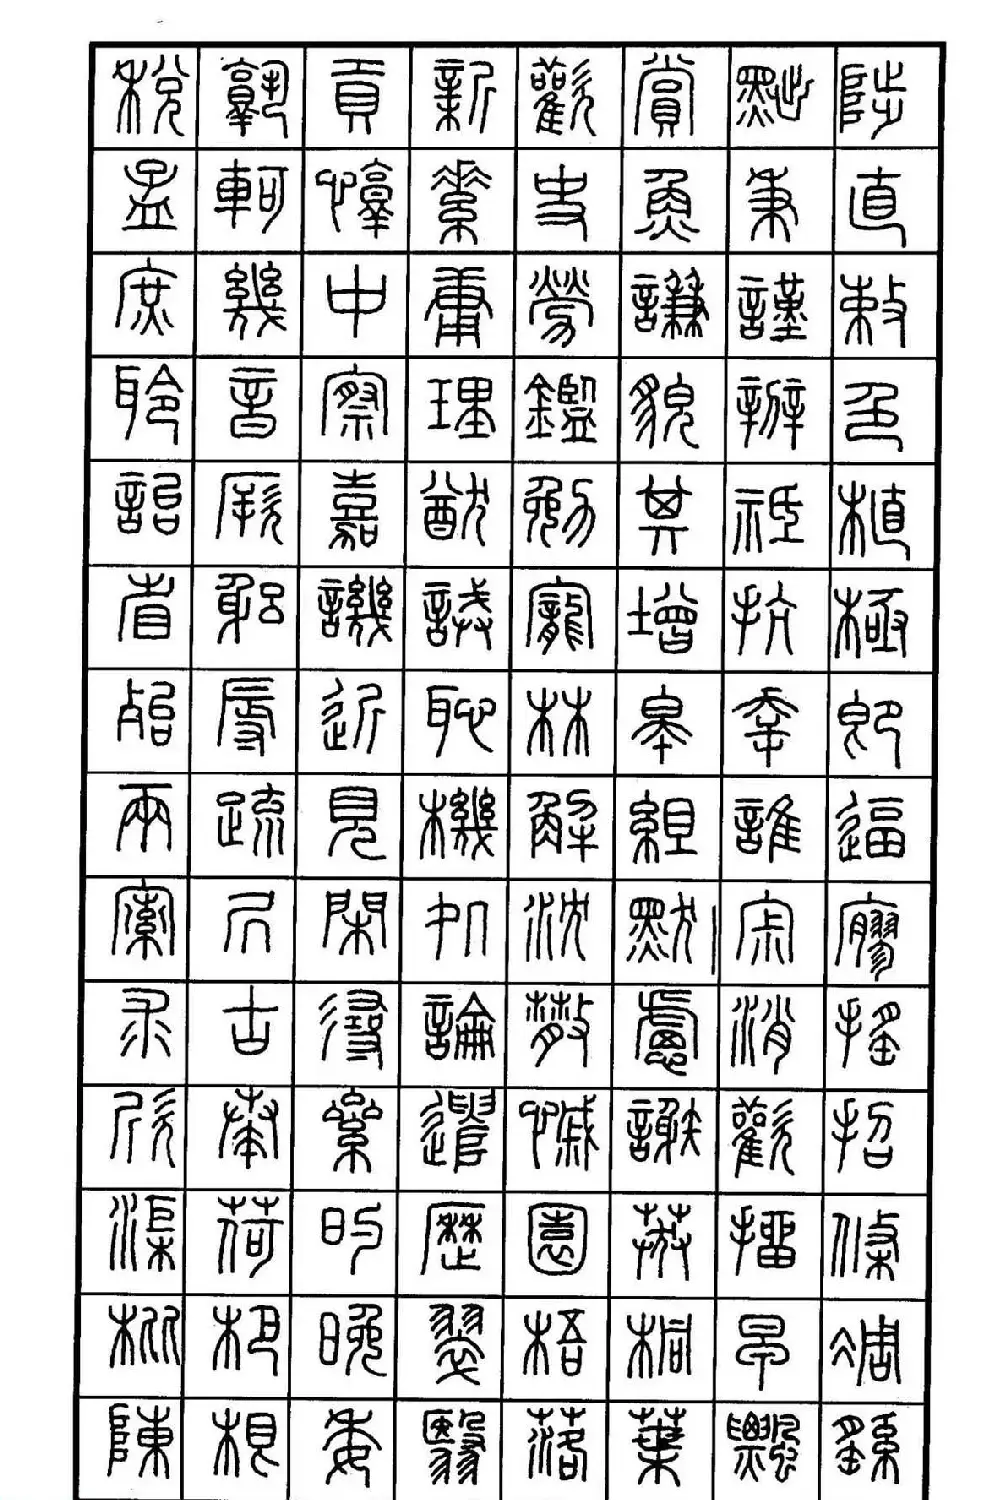 稅孰貢新勸賞黜陟
孟軻惇素史魚秉直
庶幾中庸勞謙謹敕
聆音察理鑑貌辨色
詒厥嘉猷勉其祗植
省躳譏誡寵增抗極
殆辱近恥林皋幸即
兩疏見機解組誰逼
索凥閑処沈默寂寥
求古尋論散慮消搖
欣奏纍遣慽謝歡招
渠荷的歷園莽擂條
枇杷晚翠梧桐早凋
陳根委翳落葉飄䌛